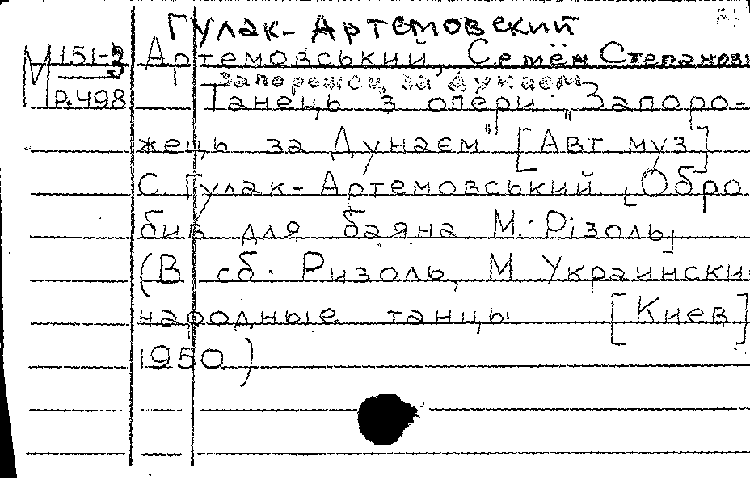 Гулак-Артемовский
М 151-3 Артемовський, Семён Степанови
запорожец за дунаем
р.498 Танець з опери „Запоро-
жець за Дунаєм" [Авт муз]
С. Гулак-Артемовський [Обро
бив для баяна М. Різоль]
(В сб. Ризоль, М Украински
народные танцы [Киев]
1950)